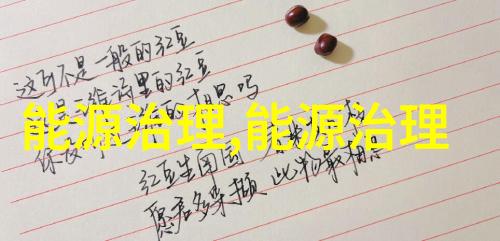 这可不是一般的红豆
是 诗里的红豆
你 的相思吗
能源治理,能源治理
红豆生南国 春来
愿君多采撷 此物最相思